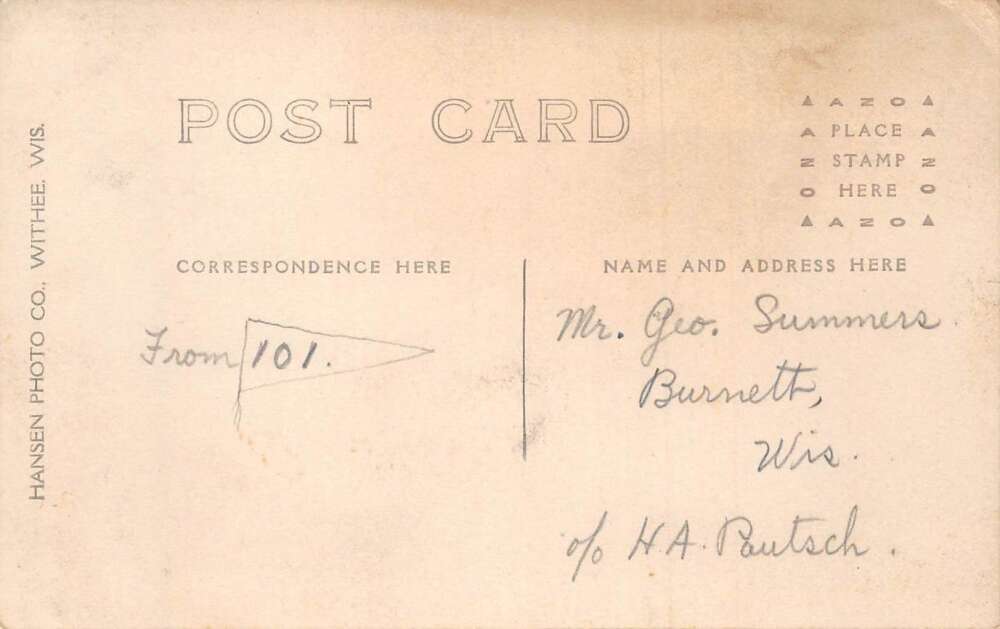 POST CARD
▲ A Z O ▲
A PLACE A
Z STAMP Z
O HERE O
▲ A Z O ▲
HANSEN PHOTO CO., WITHEE, WIS.
CORRESPONDENCE HERE
From 101.
NAME AND ADDRESS HERE
Mr. Geo. Summers.
Burnett,
Wis.
c/o H.A. Pautsch.